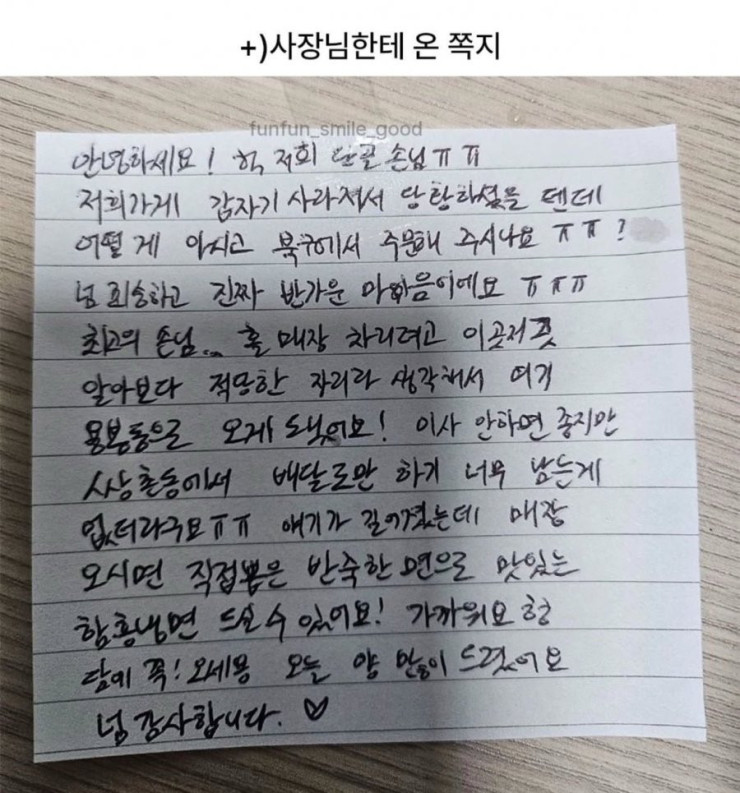 +)사장님한테 온 쪽지
funfun_smile_good
안녕하세요! 헉 저희 단골 손님 ㅠㅠ
저희가게 갑자기 사라져서 당황하셨을 텐데
어떻게 아시고 북구에서 주문해 주시나요 ㅠㅠ?
넘 죄송하고 진짜 반가운 마음이에요 ㅠㅠㅠ
최고의 손님... 홀 매장 차리려고 이곳저곳
알아보다 적당한 자리라 생각해서 여기
용봉동으로 오게 됐어요! 이사 안하면 좋지만
상촌동에서 배달로만 하기 너무 남는게
없더라구요ㅠㅠ 얘기가 길어졌는데 매장
오시면 직접뽑은 반죽한 면으로 맛있는
함흥냉면 드실 수 있어요! 가까워요 헝
담에 꼭! 오세용 오늘 양 많이 드렸어요
넘 감사합니다. ♡